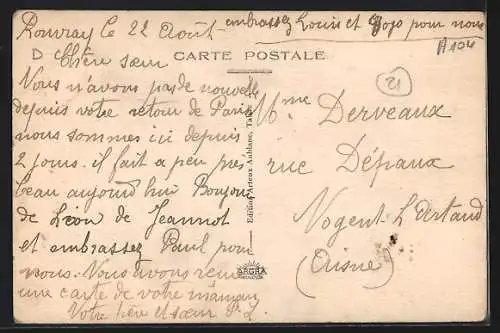 Rouvray le 22 Août
embrassez Louis et Gogo pour nous
A104
CARTE POSTALE
D
Chère sœur
21
Vous n'avons pas de nouvelle
depuis votre retour de Paris
nous sommes ici depuis
2 jours. il fait a peu près
beau aujourd'hui Bonjour
de Léon de Jeannot
et embrassez Paul pour
nous. Nous avons reçu
une carte de votre maman
Votre père et sœur
Edition Artoux Aublanc,
Mme Derveaux
rue Dépaux
Nogent L'Artaud
(Aisne)